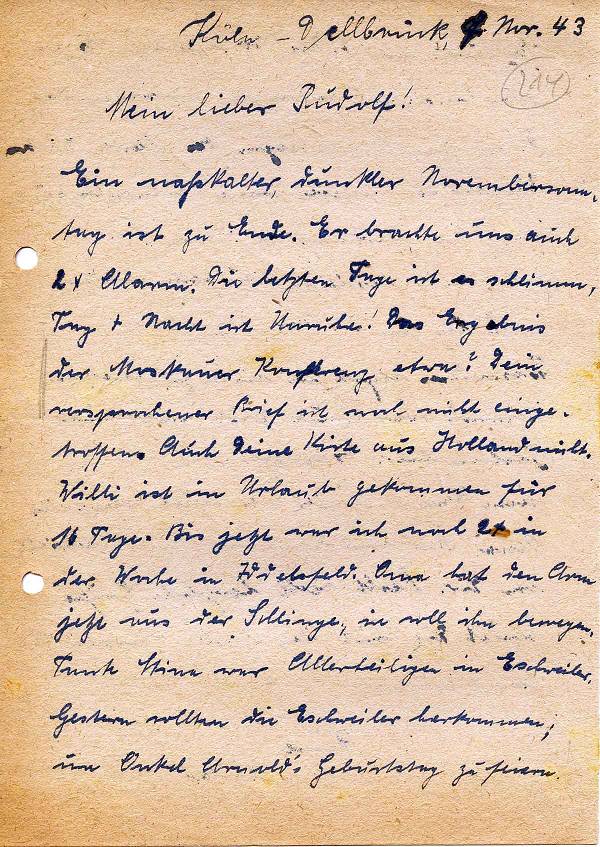 Köln - Dellbrück, 7. Nov. 43
214
Mein lieber Rudolf!
Ein naßkalter, dunkler Novembersonn-
tag ist zu Ende. Er brachte uns auch
2 x Alarm. Die letzten Tage ist es schlimm,
Tag + Nacht ist Unruhe! Das Ergebnis
der Moskauer Konferenz etwa? Dein
versprochener Brief ist noch nicht einge-
troffen. Auch Deine Kiste aus Holland nicht.
Willi ist in Urlaub gekommen für
16 Tage. Bis jetzt war ich noch 2x in
der Woche in Iddelsfeld. Oma hat den Arm
jetzt aus der Schlinge, sie soll ihn bewegen.
Tante Stina war Allerheiligen in Eschweiler.
Gestern wollten die Eschweiler herkommen,
um Onkel Arnold's Geburtstag zu feiern.